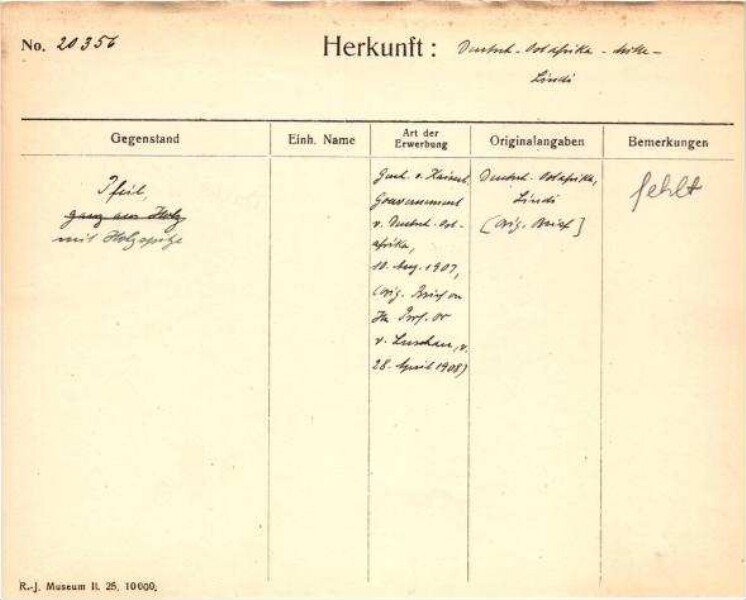 No. 20356
Herkunft: Deutsch-Ostafrika - Mitte -
Lindi
Gegenstand
Einh. Name
Art der Erwerbung
Originalangaben
Bemerkungen
Pfeil,
ganz aus Holz
mit Holzspitze
Gesch. v. Kaiserl.
Gouvernement
v. Deutsch-Ost-
afrika,
10. Aug. 1907,
(Orig. Brief an
Hr. Prof. Dr
v. Luschan, v.
28. April 1908)
Deutsch-Ostafrika,
Lindi
[Orig. Brief]
fehlt
R.-J. Museum II. 25. 10000.